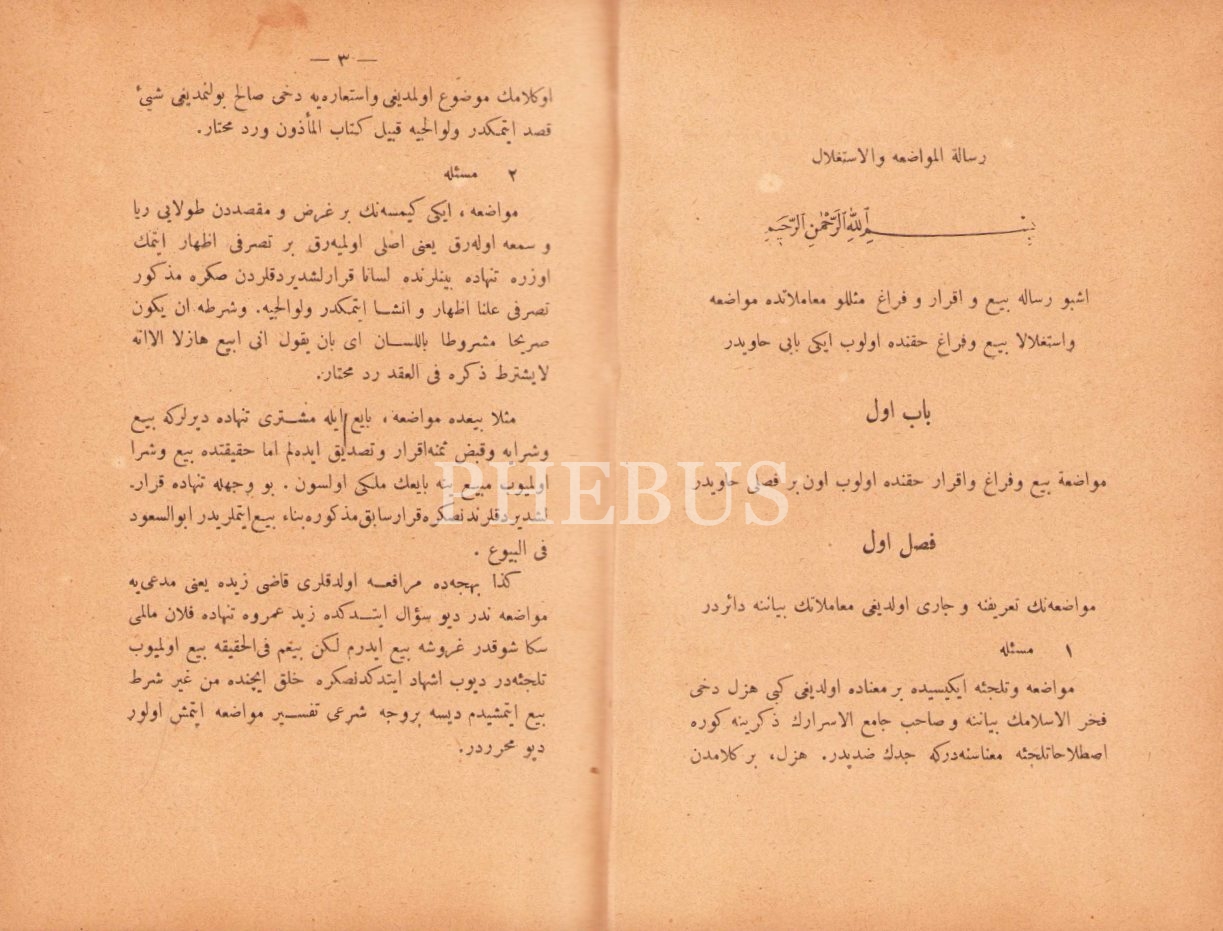 رسالة المواضعه والاستغلال
بسم الله الرحمن الرحيم
اشبو رساله بيع و اقرار و فراغ مثللو معاملاتده مواضعه
واستغلالا بيع وفراغ حقنده اولوب ايكى بابى حاويدر
باب اول
مواضعۀ بيع وفراغ واقرار حقنده اولوب اون بر فصلى حاويدر
فصل اول
مواضعه‌نك تعريفنه و جارى اولديغى معاملاتك بياننه دائردر
١ مسئله
مواضعه وتلجئه ايكيسيده بر معناده اولديغى كبى هزل دخى
فخر الاسلامك بياننه و صاحب جامع الاسرارك ذكرينه كوره
اصطلاحاتلجئه معناسنه‌دركه جدك ضديدر. هزل، بر كلامدن
— ٣ —
اوكلامك موضوع اولمديغى واستعاره‌يه دخى صالح بولنمديغى شيئ
قصد ايتمكدر ولوالجيه قبيل كتاب المأذون ورد محتار.
٢ مسئله
مواضعه، ايكى كيمسه‌نك بر غرض و مقصددن طولايى ريا
و سمعه اوله‌رق يعنى اصلى اولميه‌رق بر تصرفى اظهار ايتمك
اوزره تنهاده بينلرنده لسانا قرارلشديردقلردن صكره مذكور
تصرفى علنا اظهار و انشا ايتمكدر ولوالجيه. وشرطه ان يكون
صريحا مشروطا باللسان اى بان يقول انى ابيع هازلا الاانه
لايشترط ذكره فى العقد رد محتار.
مثلا بيعده مواضعه، بايع ايله مشترى تنهاده ديرلركه بيع
وشرايه وقبض ثمنه‌اقرار وتصديق ايده‌لم اما حقيقتده بيع وشرا
اولميوب مبيع ينه بايعك ملكى اولسون. بو وجهله تنهاده قرار.
لشديردقلرندنصكره‌قرارسابق‌مذكوره‌بناء بيع‌ايتملريدر ابوالسعود
فى البيوع.
كذا بهجه‌ده مرافعه اولدقلرى قاضى زيده يعنى مدعى‌يه
مواضعه ندر ديو سؤال ايتدكده زيد عمروه تنهاده فلان مالمى
سكا شوقدر غروشه بيع ايدرم لكن بيعم فى‌الحقيقه بيع اولميوب
تلجئه‌در ديوب اشهاد ايتدكدنصكره خلق ايچنده من غير شرط
بيع ايتمشيدم ديسه بروجه شرعى تفسير مواضعه ايتمش اولور
ديو محرردر.
PHEBUS